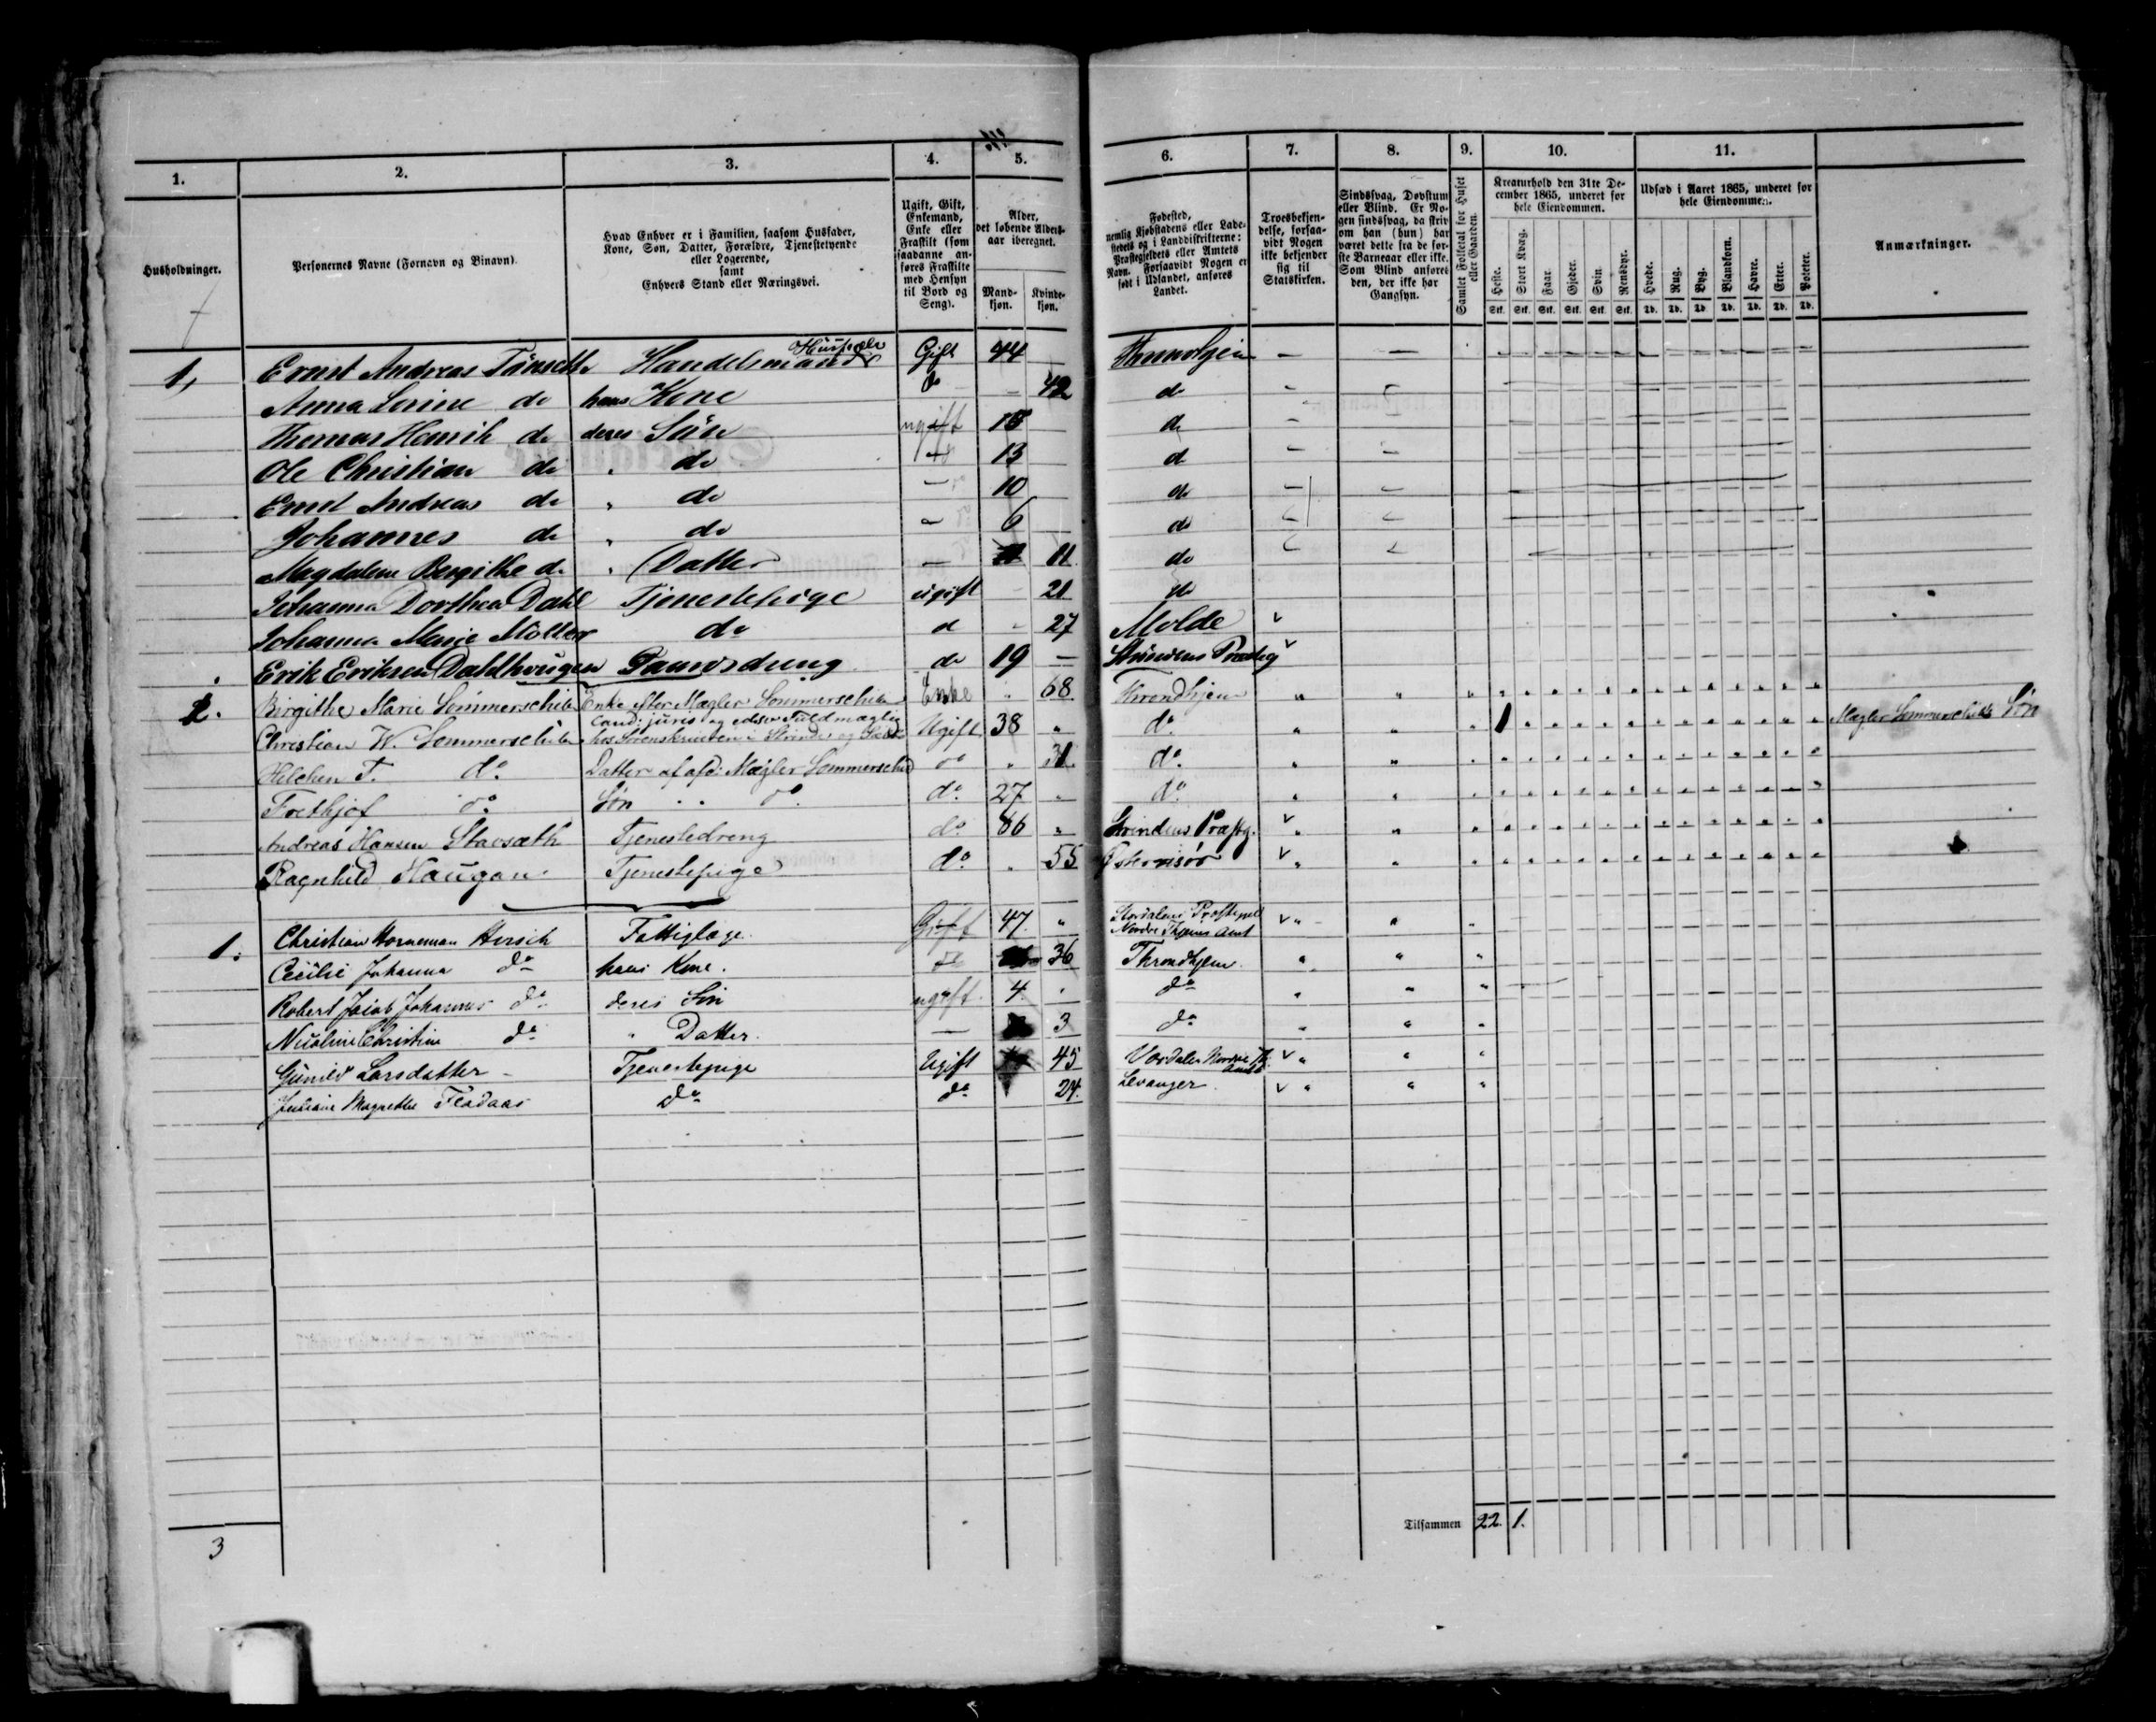 1. 2. 3. 4. 5. 6. 7. 8. 9. 10. 11.
Husholdninger.
Personernes Navne (Fornavn og Binavn).
Hvad Enhver er i Familien, saasom Husfader,
Kone, Søn, Datter, Forældre, Tjenestetyende
eller Logerende,
samt
Enhvers Stand eller Næringsvei.
Ugift, Gift,
Enkemand,
Enke eller
Fraskilt (som
saadanne an-
føres Fraskilte
med Hensyn
til Bord og
Seng).
Alder,
det løbende Alders-
aar iberegnet.
Mand-
kjøn.
Kvinde-
kjøn.
Fødested,
nemlig Kjøbstadens eller Lade-
stedets og i Landdistrikterne:
Præstegjeldets eller Amtets
Navn. Forsaavidt Nogen er
født i Udlandet, anføres
Landet.
Troesbekjen-
delse, forsaa-
vidt Nogen
ikke bekjender
sig til
Statskirken.
Sindssvag, Døvstum
eller Blind. Er No-
gen sindssvag, da skriv
om han (hun) har
været dette fra de før-
ste Barneaar eller ikke.
Som Blind anføres
den, der ikke har
Gangsyn.
Samlet Folketal for Huset
eller Gaarden.
Kreaturhold den 31te De-
cember 1865, underet for
hele Eiendommen.
Heste. Stort Kvæg. Faar. Gjeder. Svin. Rensdyr.
Stk. Stk. Stk. Stk. Stk. Stk.
Udsæd i Aaret 1865, underet for
hele Eiendommen.
Hvede. Rug. Byg. Blandkorn. Havre. Erter. Poteter.
Td. Td. Td. Td. Td. Td. Td.
Anmærkninger.
1, Ernst Andreas Tönseth Handelsmand Gift 44 -
Anna Lovine do hans Kone do - 42 do
Thomas Henrik do deres Sön ugift do
Ole Christian do " do 13 do
Ernst Andreas do " do 10 do
Johannes do " do 6 do
Magdalene Bergithe do " Datter 11. do
Johanna Dorthea Dahl Tjenestepige ugift 21 do
Johanna Marie Möller do do 27 Molde v
Erik Eriksen Dahlhougen do 19 - v
2. Birgithe Marie Sommerschild Enke efter Mægler Sommerschild Enke " 68 Throndhjem
Cand: juris og edsv. Fuldmægtig
Christian W. Sommerschild hos Sorenskriveren i Strinda og Ugift 38 " do 1 Mægler Sommerschilds Søn
do Datter af afd: Mægler Sommerschild do " 31. do
do Søn " " do do 27 " do
Andreas Hansen Stavsæth Tjenestedreng do " Strindens Præstg. v
Ragnhild Haugan Tjenestepige do " 55 Østerrisør v
1. Christian Horneman Hersch Gift 47. "
Cecilie Johanna do hans Kone. 36 Throndhjem.
Robert Jacob Johannes do deres Søn ugift. 4. " do
Nicoline Christine do " Datter. - 3 do
Gunild Larsdatter - Tjenestepige Ugift 45 v
do do 24. Levanger. v
Tilsammen 22. 1.
3